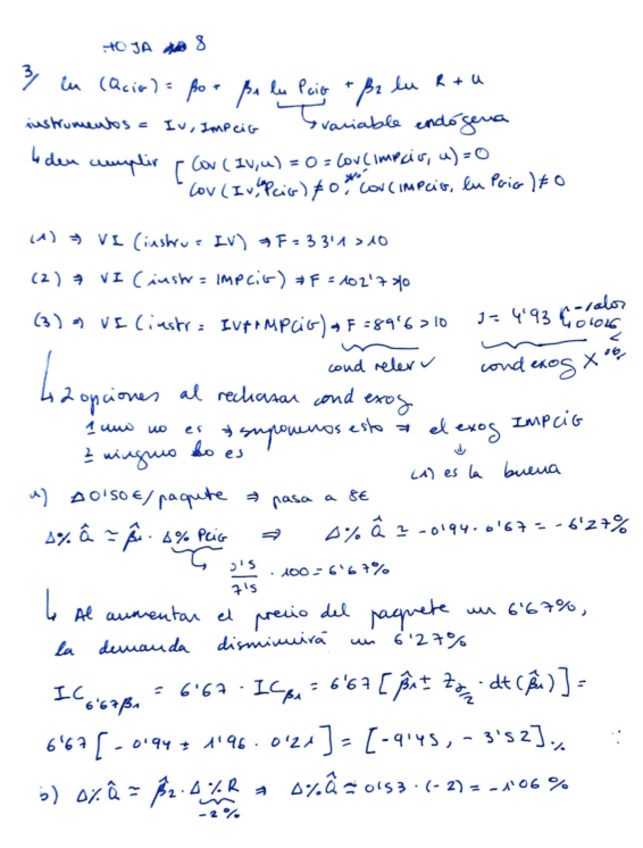 HOJA 8
3/ ln (Qcig) = β0 + β1 ln Pcig + β2 ln R + u
instrumentos = IV, IMPCIG ↳ variable endógena
↳ den cumplir [ Cov(IV, u) = 0 = Cov(IMPcig, u) = 0
Cov(IV, ln Pcig) ≠ 0, Cov(IMPcig, ln Pcig) ≠ 0
(1) ⇒ VI (instru = IV) ⇒ F = 33'1 > 10
(2) ⇒ VI (instr = IMPCIG) ⇒ F = 102'7 > 10
(3) ⇒ VI (instr = IV + IMPCIG) → F = 89'6 > 10 J = 4'93 p-valor
cond relev ✓ cond exog X
↳ 2 opciones al rechazar cond exog
1 uno no es → suponemos esto ⇒ el exog IMPCIG
2 ninguno lo es ↓
(1) es la buena
a) Δ 0'50€/paquete ⇒ pasa a 8€
Δ% Q̂ ≃ β̂1 · Δ% Pcig ⇒ Δ% Q̂ ≃ -0'94 · 6'67 = -6'27%
↳ 0'5/7'5 · 100 = 6'67%
↳ Al aumentar el precio del paquete un 6'67%,
la demanda disminuirá un 6'27%
IC6'67β1 = 6'67 · ICβ1 = 6'67 [ β̂1 ± Zα/2 · dt(β̂1) ] =
6'67 [ -0'94 ± 1'96 · 0'21 ] = [ -9'45, -3'52 ] %
b) Δ% Q̂ ≃ β̂2 · Δ% R ⇒ Δ% Q̂ ≃ 0'53 · (-2) = -1'06%
-2%